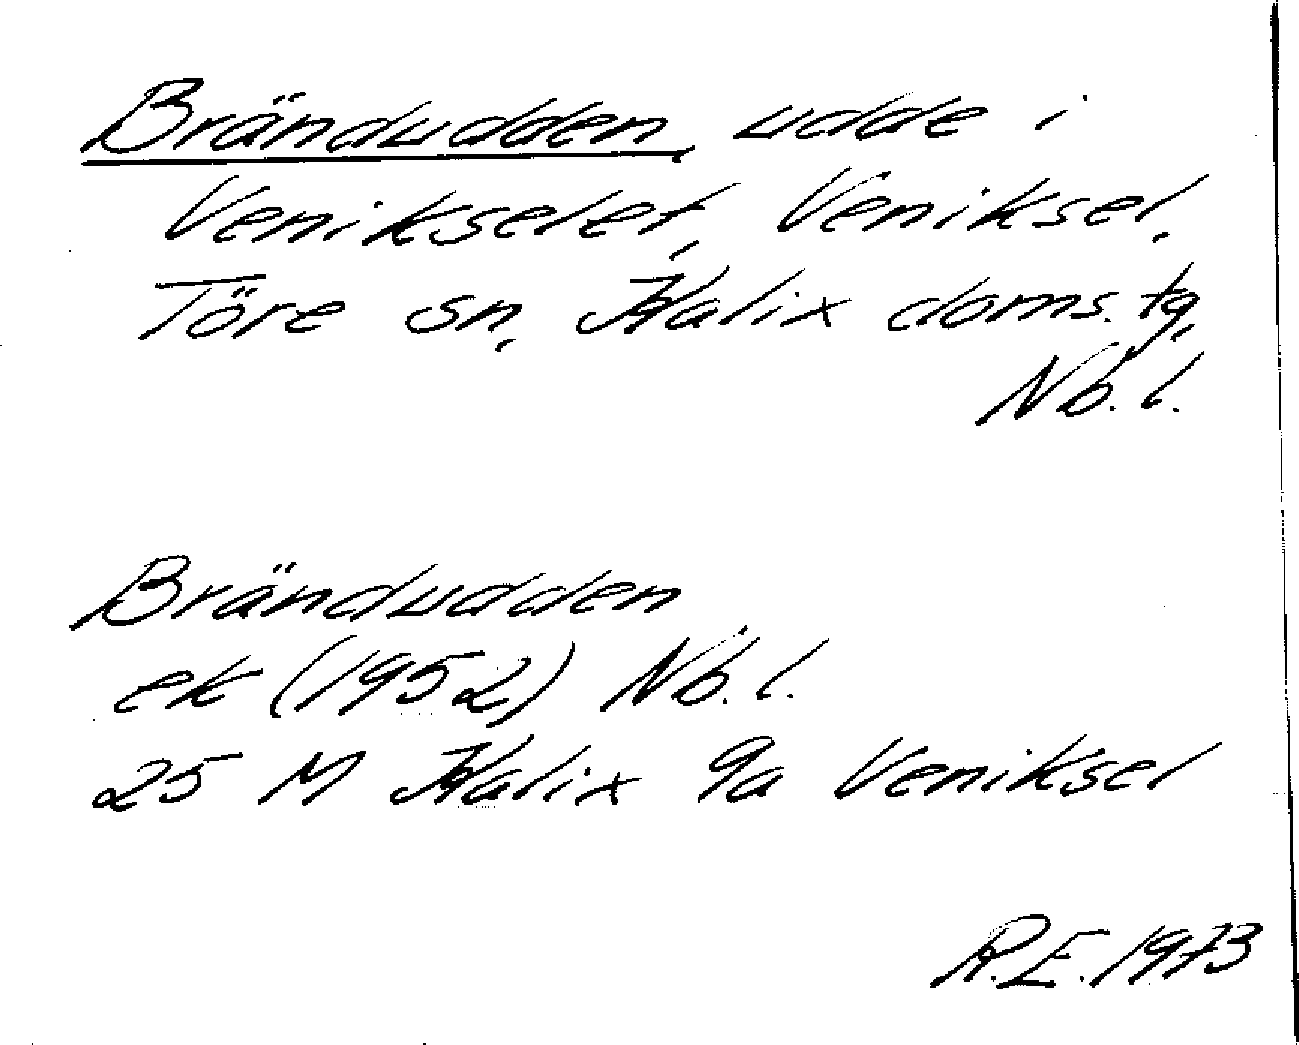 Brändudden, udde i
Venikselet, Veniksel,
Töre sn, Kalix doms. tg,
Nb. l.
Brändudden
ek (1952) Nb. l.
25 M Kalix 9a Veniksel
R.E. 1973